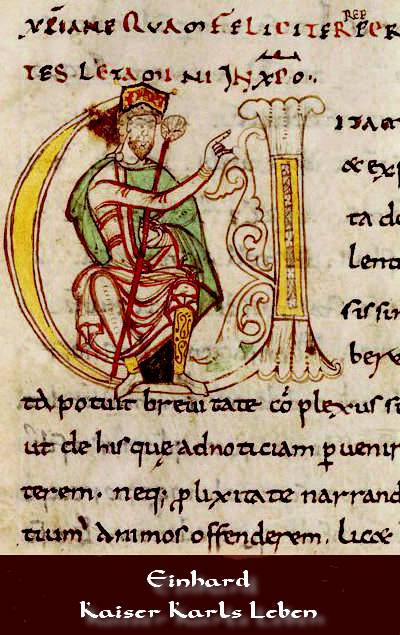 QUAM FELICITER
TES LETAMINI IN XPO.
ITAM
& exp
ta do
lenti
sissim
bere
tā potuit breuitate cōplexus s
ut de his que ad noticiam ꝑuenir
terem. neq; ꝓlixitate narrand
tiū animos offenderem. lic&
Einhard
Kaiser Karls Leben